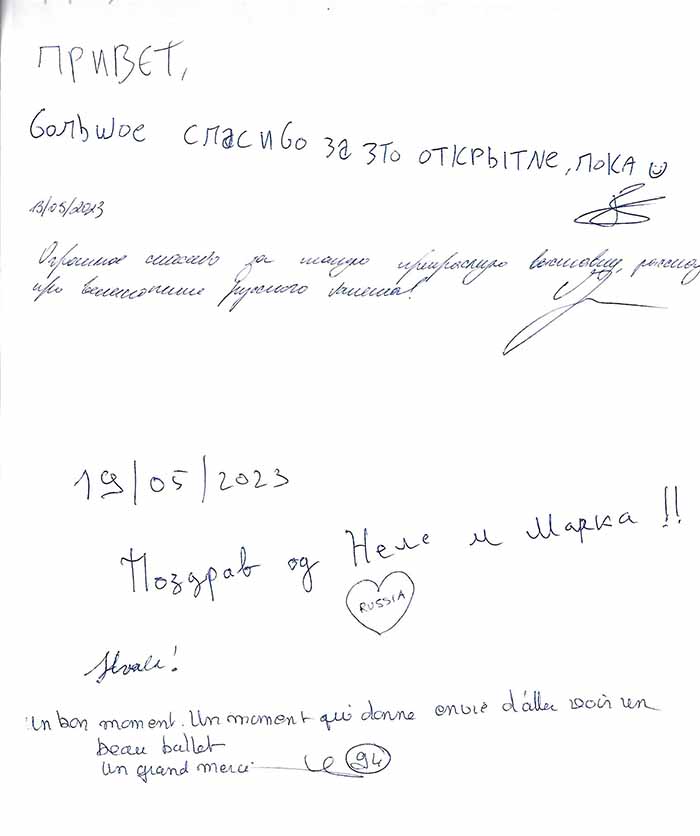 ПРИВЕТ,
большое спасибо за это открытие, пока
13/05/2023
Огромное спасибо за такую прекрасную выставку, рассказ
про великолепие Русского балета!
19/05/2023
Поздрав од Неле и Марка !!
RUSSIA
Hvala!
Un bon moment. Un moment qui donne envie d'aller voir un
beau ballet
Un grand merci
94